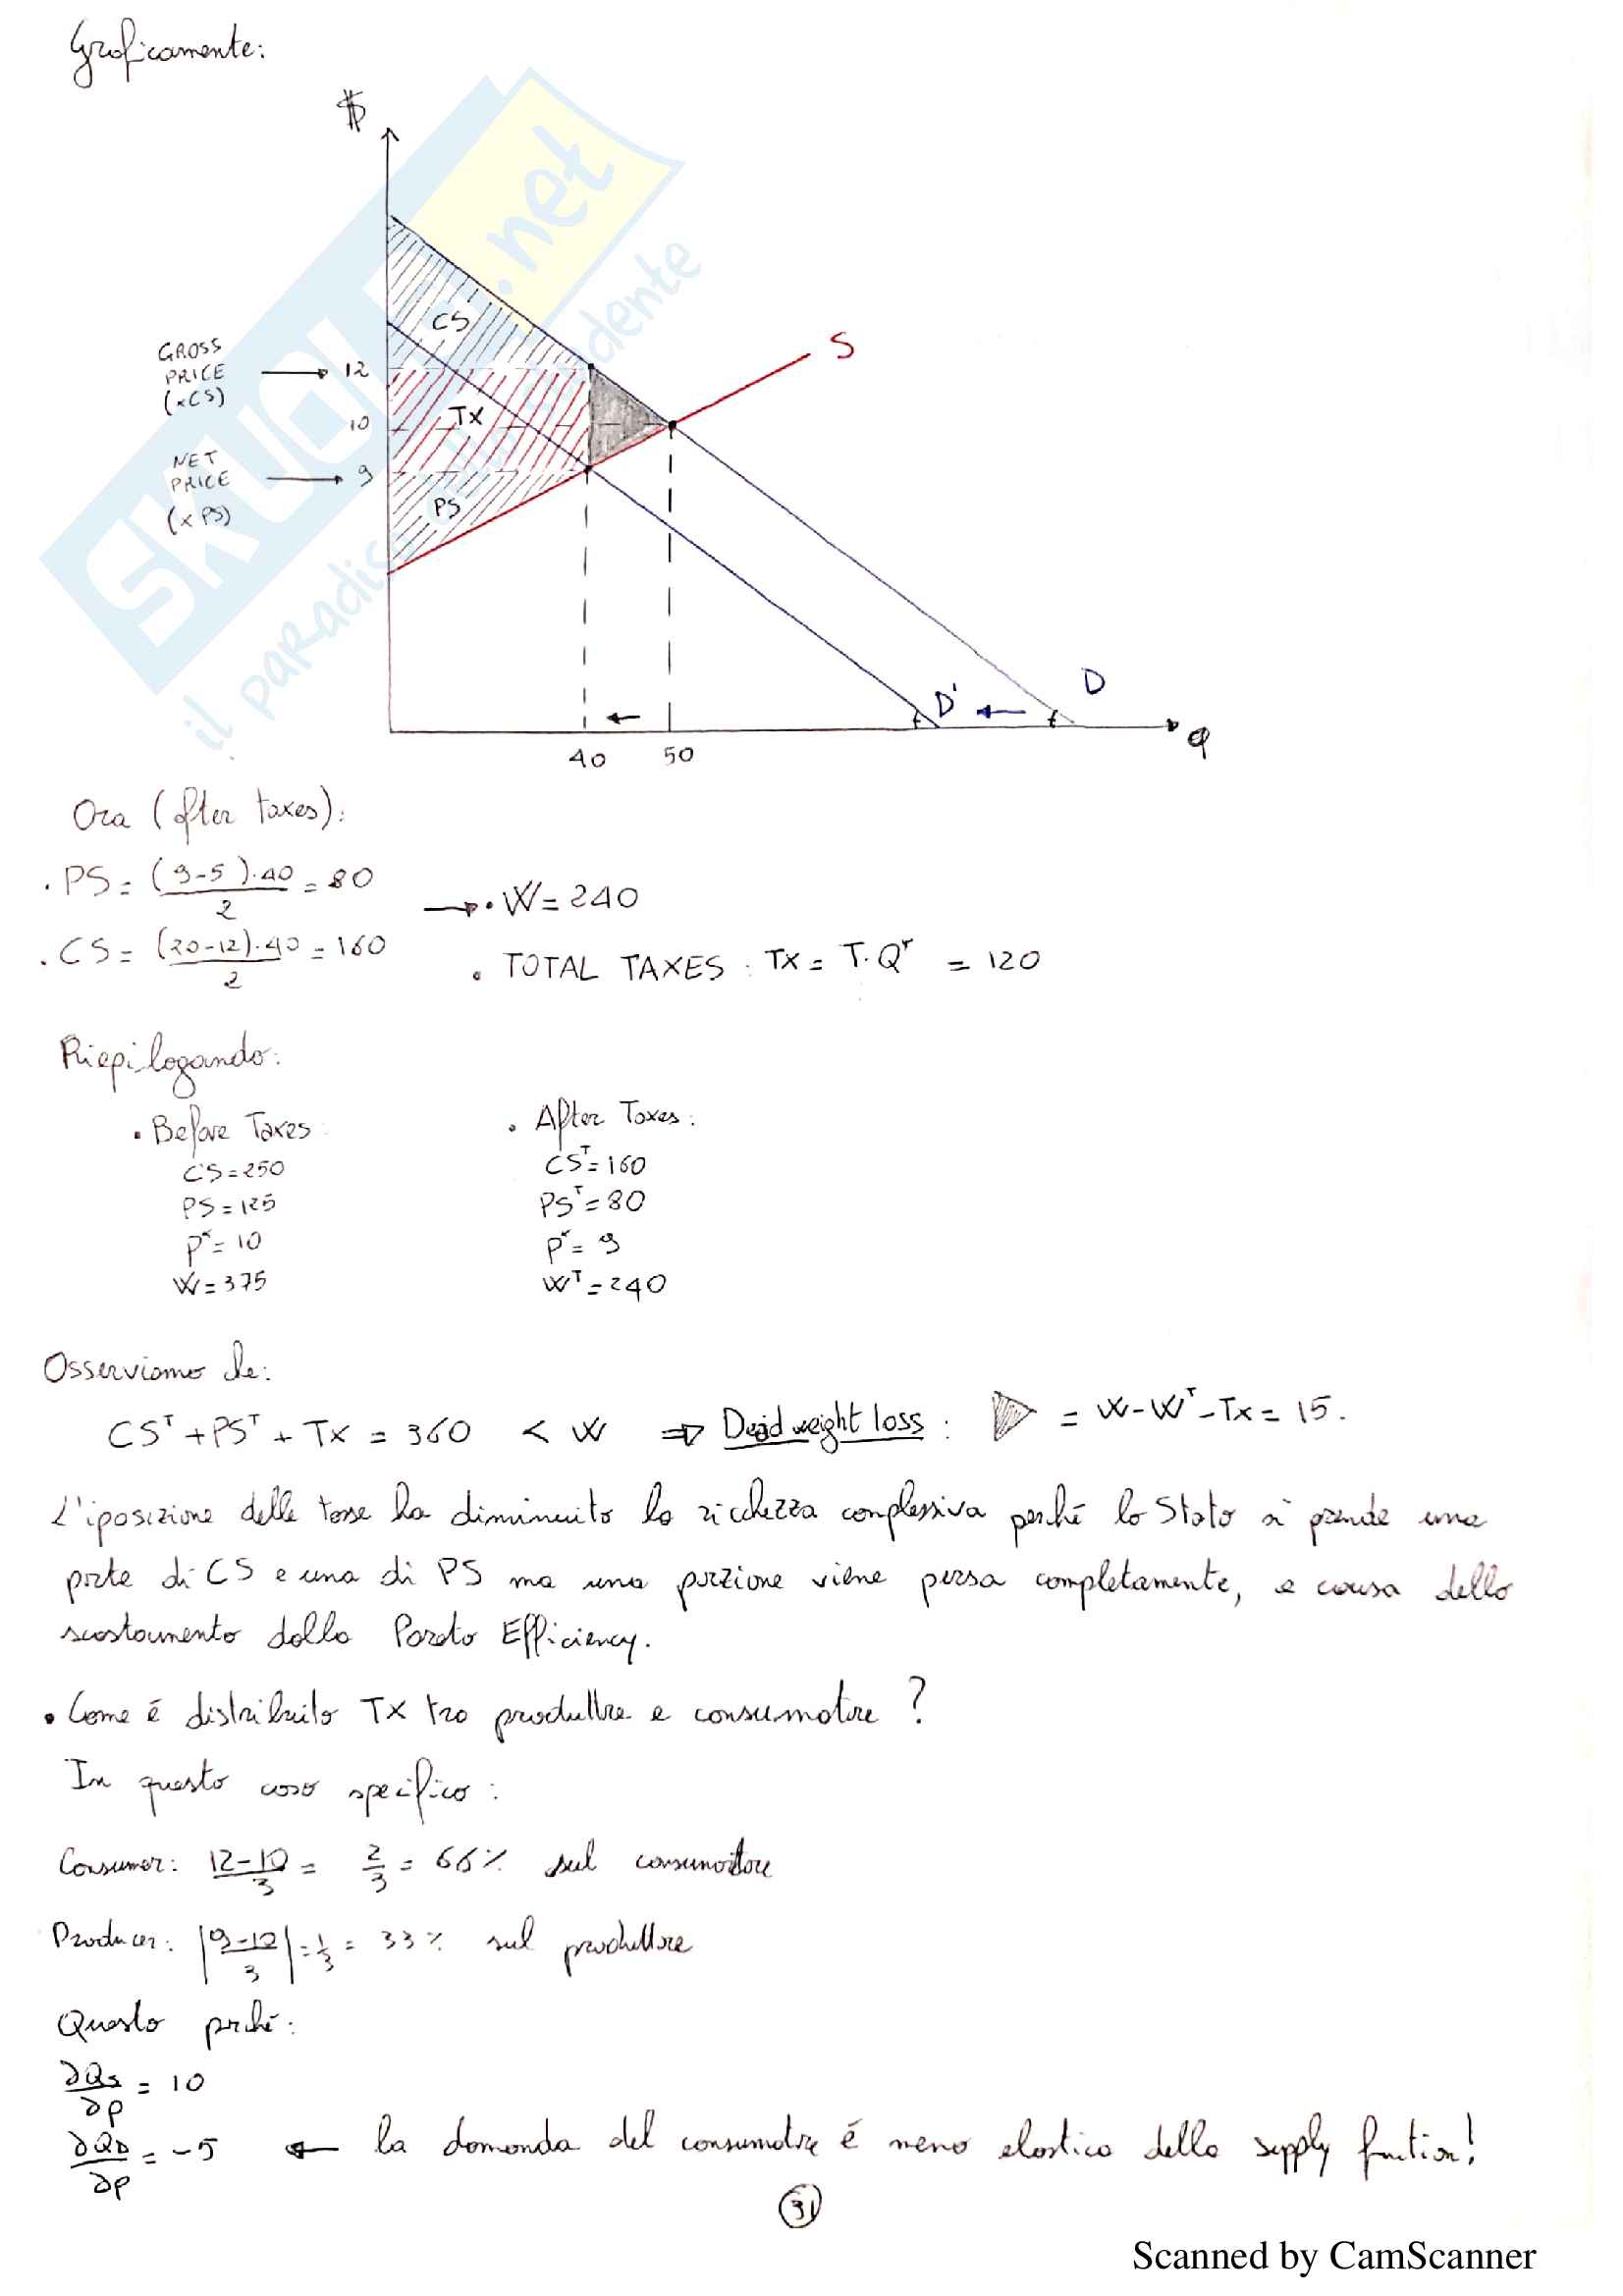 Graficamente:
$
SKUOLA.net
il paradiso dello studente
CS
S
GROSS
PRICE
(xCS)
12
TX
10
NET
PRICE
(x PS)
9
PS
D'
D
Q
40
50
Ora (after taxes):
• PS = (9-5)·40 / 2 = 80
→ • W = 240
• CS = (20-12)·40 / 2 = 160
• TOTAL TAXES : TX = T·Q* = 120
Riepilogando:
• Before Taxes:
• After Taxes:
CS = 250
CSᵀ = 160
PS = 125
PSᵀ = 80
p* = 10
p* = 9
W = 375
Wᵀ = 240
Osserviamo che:
CSᵀ + PSᵀ + TX = 360 < W ⇒ Deadweight loss : = W - Wᵀ - TX = 15.
L'iposizione delle tasse ha diminuito la ricchezza complessiva perché lo Stato si prende una
parte di CS e una di PS ma una porzione viene persa completamente, a causa dello
scostamento dalla Pareto Efficiency.
• Come é distribuito TX tra produttore e consumatore ?
In questo caso specifico :
Consumer: 12-10 / 3 = 2/3 = 66% sul consumatore
Producer: |9-10 / 3| = 1/3 = 33% sul produttore
Questo perché:
∂Qs/∂p = 10
∂QD/∂p = -5 ← la domanda del consumatore é meno elastica della supply function!
31
Scanned by CamScanner